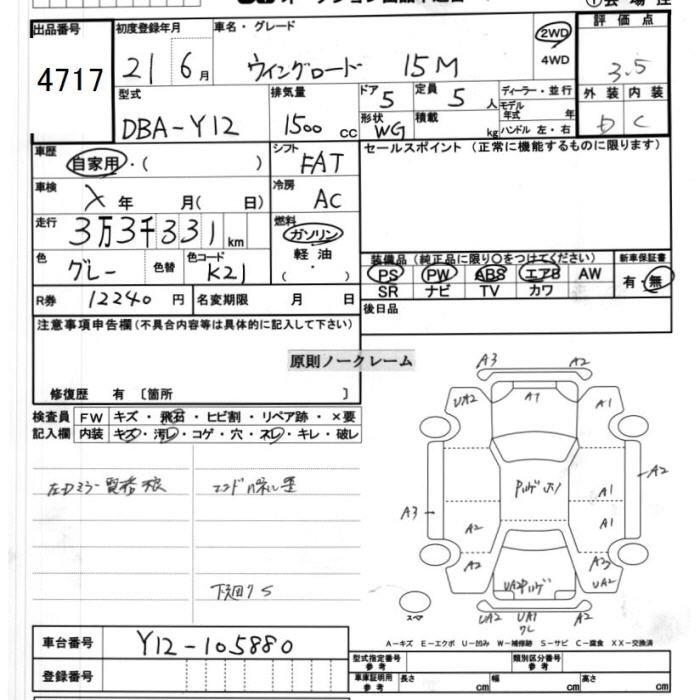 出品番号
4717
初度登録年月
21 6月
車名・グレード
ウィングロード 15M
2WD
4WD
評価点
3.5
外装 内装
D C
型式
DBA-Y12
排気量
1500 cc
ドア 5
定員 5 人
形状 WG
積載 kg
ディーラー・並行
モデル年式 年
ハンドル 左・右
車歴
自家用・( )
シフト
FAT
セールスポイント (正常に機能するものに限ります)
車検
年 月( 日)
冷房
AC
走行
3万3千331km
燃料
ガソリン
軽油
・
( )
色
グレー
色替
色コード
K21
装備品 (純正品に限り○をつけてください)
PS PW ABS エアB AW
SR ナビ TV カワ
新車保証書
有・無
R券 12240円
名変期限 月 日
後日品
注意事項申告欄(不具合内容等は具体的に記入して下さい)
原則ノークレーム
修復歴 有 〔箇所 〕
検査員
記入欄
FW キズ・飛石・ヒビ割・リペア跡・×要
内装 キズ・汚レ・コゲ・穴・スレ・キレ・破レ
下廻りS
A3
A2
UA2
A7
A1
A2
A1
A3
A1
A2
A2
A3
UA2
UA2
UA1
A2
スペア
A-キズ E-エクボ U-凹み W-補修跡 S-サビ C-腐食 XX-交換済
車台番号
Y12-105880
登録番号
型式指定番号
参考
類別区分番号
参考
車庫証明用
参考
長さ cm
幅 cm
高さ cm